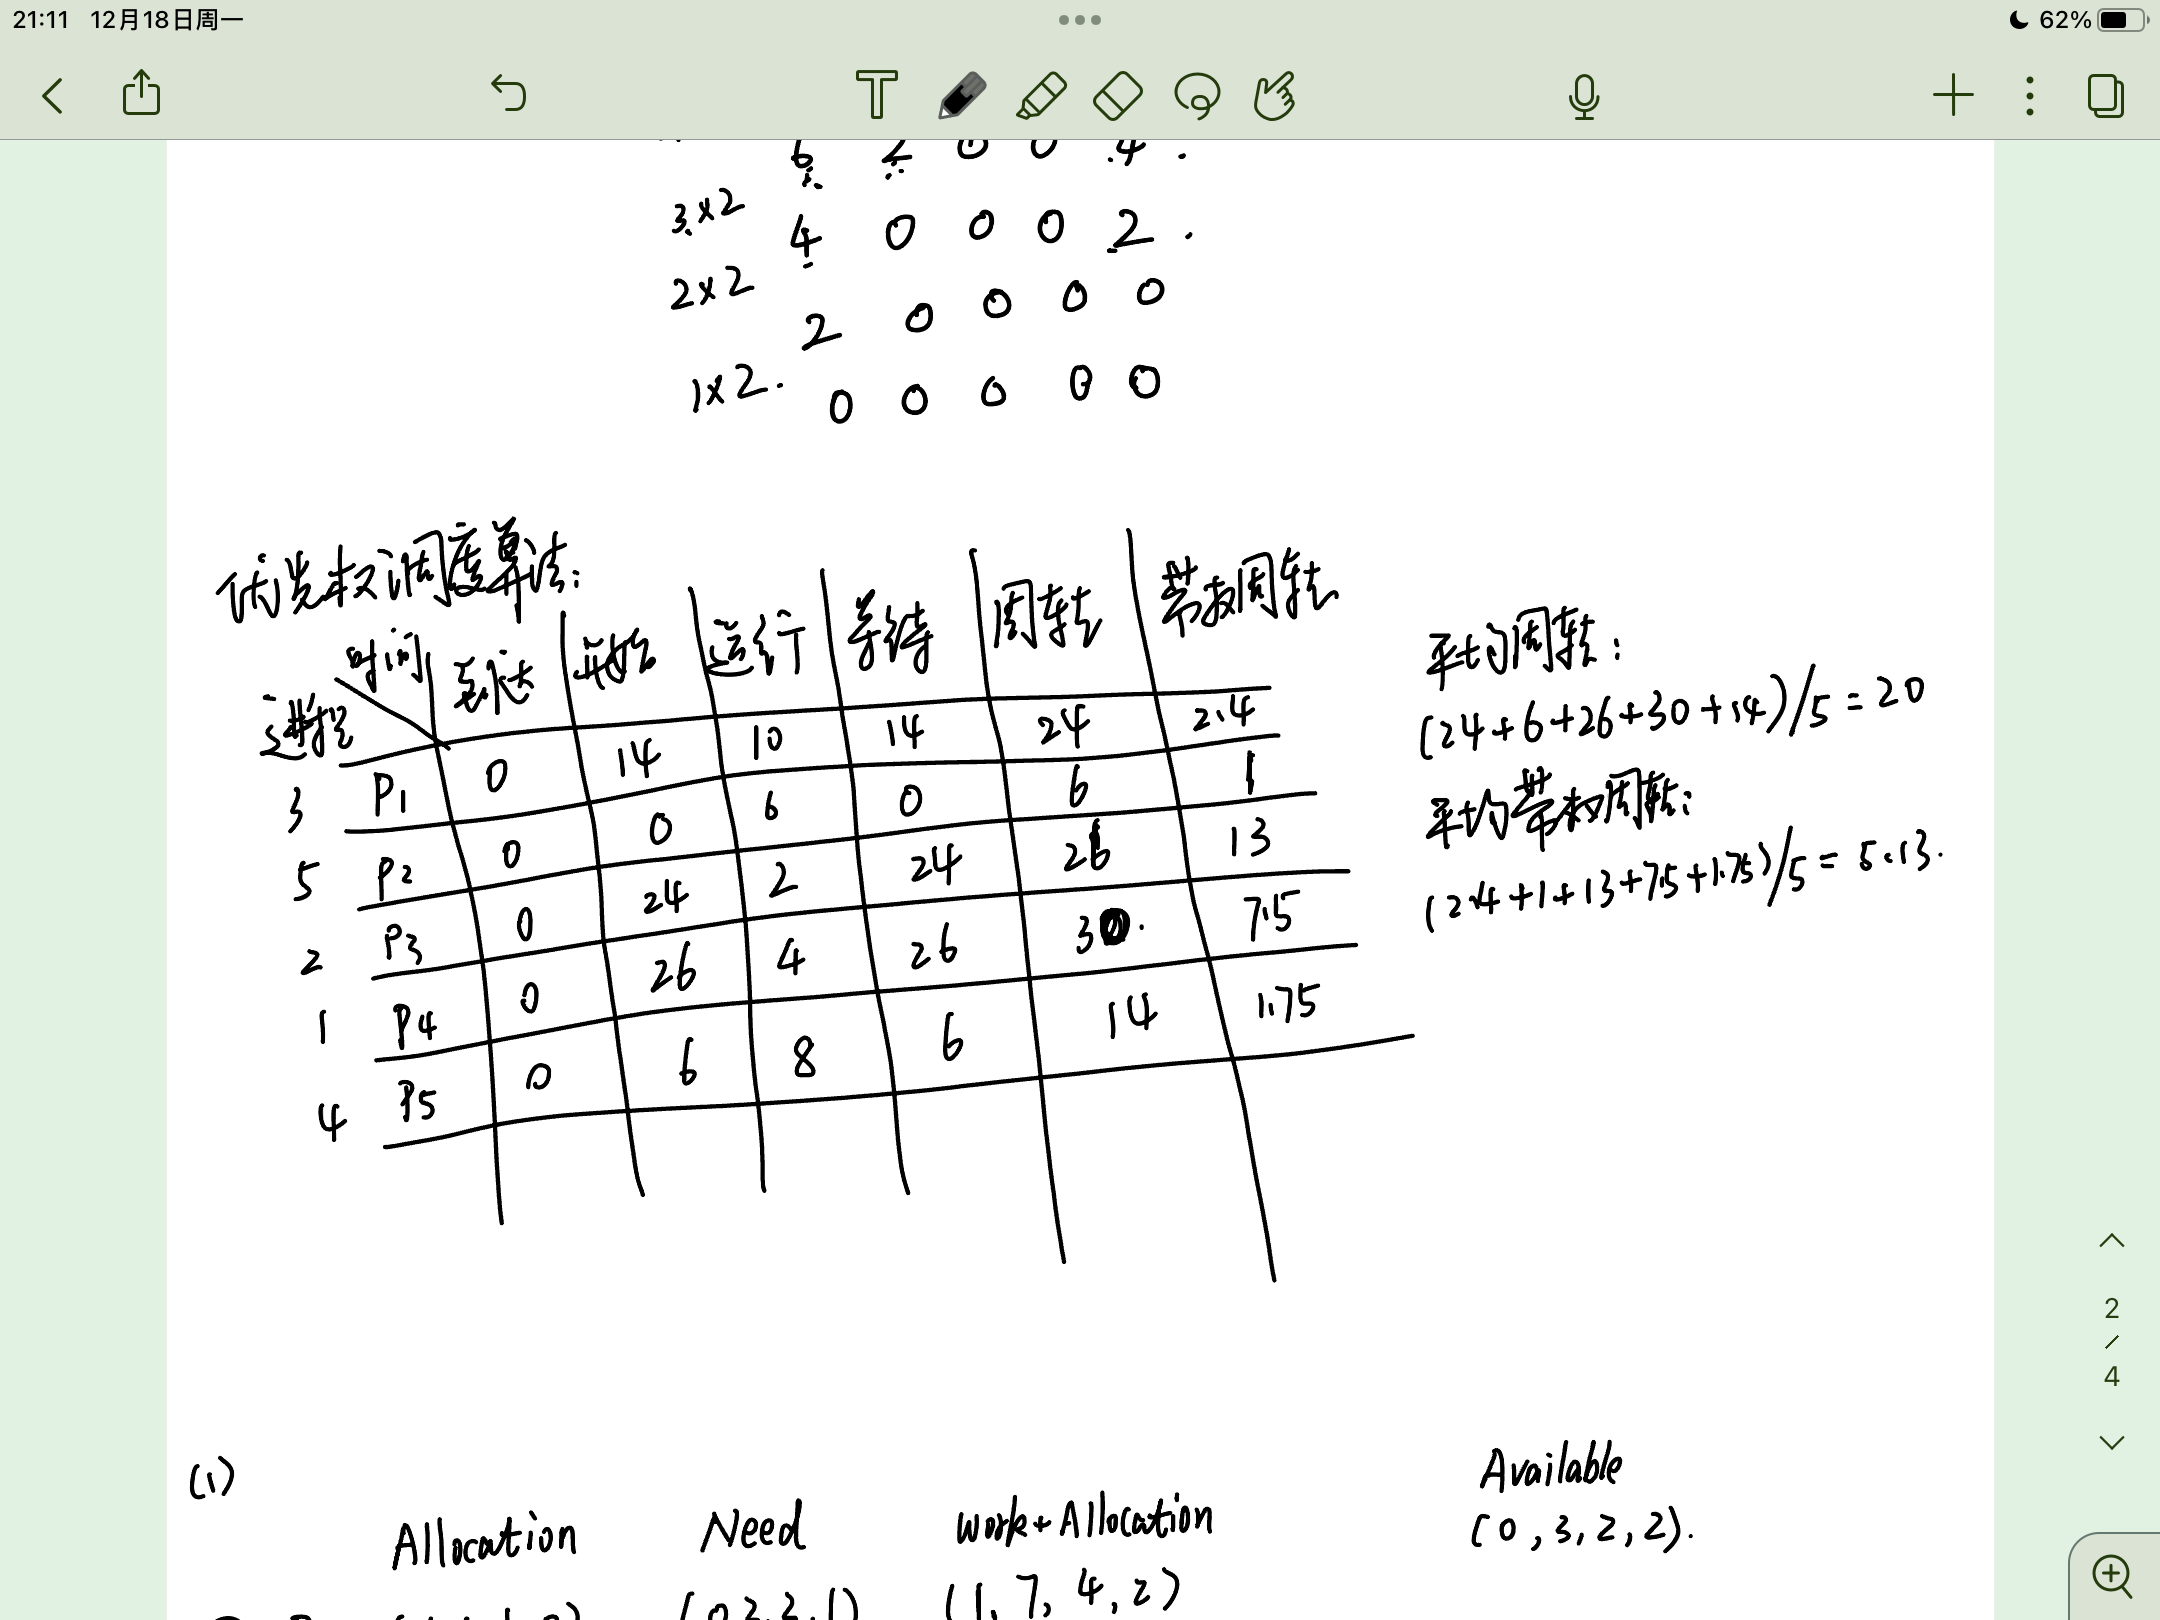 21:11 12月18日周一
62%
T
6 2 0 0 4 .
3×2
4 0 0 0 2 .
2×2
2 0 0 0 0
1×2.
0 0 0 0 0
优先权调度算法:
进程 时间 到达 开始 运行 等待 周转 带权周转
3 P1 0 14 10 14 24 2.4
5 P2 0 0 6 0 6 1
2 P3 0 24 2 24 26 13
1 P4 0 26 4 26 30. 7.5
4 P5 0 6 8 6 14 1.75
平均周转:
(24+6+26+30+14)/5=20
平均带权周转:
(2.4+1+13+7.5+1.75)/5=5.13.
2
/
4
(1)
Allocation Need Work+Allocation Available
(0,3,2,2).
(1,7,4,2)